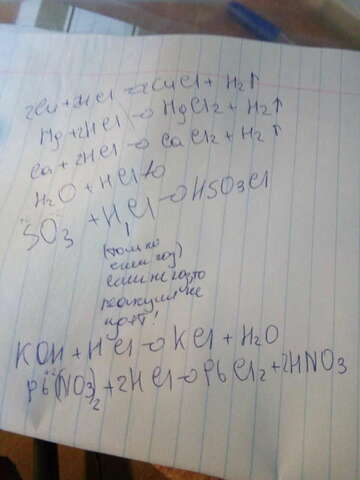 2Cu + 2HCl → 2CuCl + H2↑
Mg + 2HCl → MgCl2 + H2↑
Ca + 2HCl → CaCl2 + H2↑
H2O + HCl
SO3 + HCl → HSO3Cl
(только
если газ)
если не газ то
не
KOH + HCl → KCl + H2O
Pb(NO3)2 + 2HCl → PbCl2 + 2HNO3